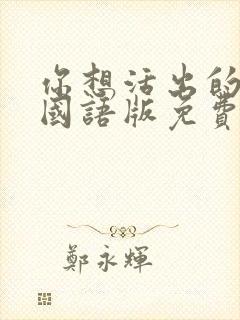 你想活出的
國語版免費
鄭永輝